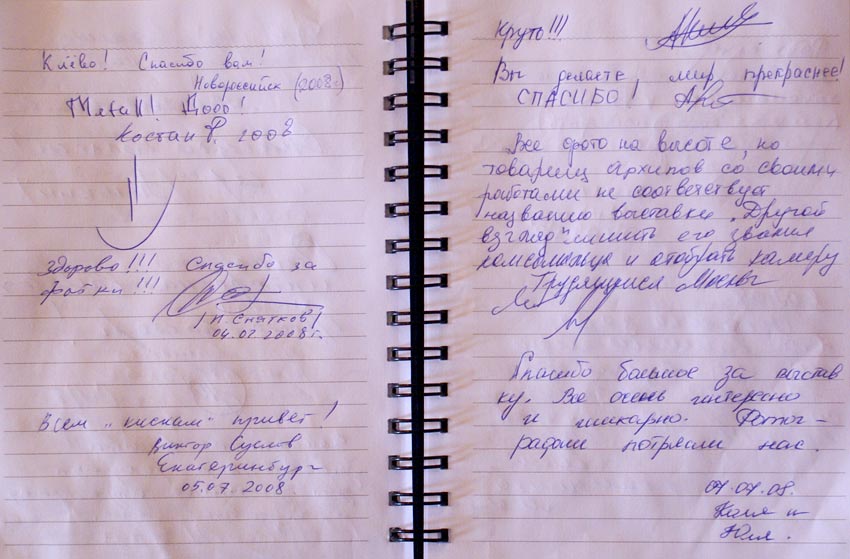 Клёво! Спасибо вам!
Новороссийск (2008г.)
Metall! Дооо!
Костан Р. 2008
Здорово!!! Спасибо за
фотки!!!
/И. Снятков/
04.07.2008г.
Всем „кискам" привет!
Виктор Суслов
Екатеринбург
05.07.2008
Круто!!!
Вы делаете, мир прекраснее!
СПАСИБО!
Все фото на высоте, но
товарищ Архипов со своими
работами не соответствует
названию выставки „Другой
взгляд" лишить его звания
комсомольца и отобрать камеру
Трудящиеся Москвы
Спасибо большое за выстав
ку. Все очень интересно
и шикарно. Фотог-
рафии потрясли нас.
07.07.08.
Коля и
Юля.